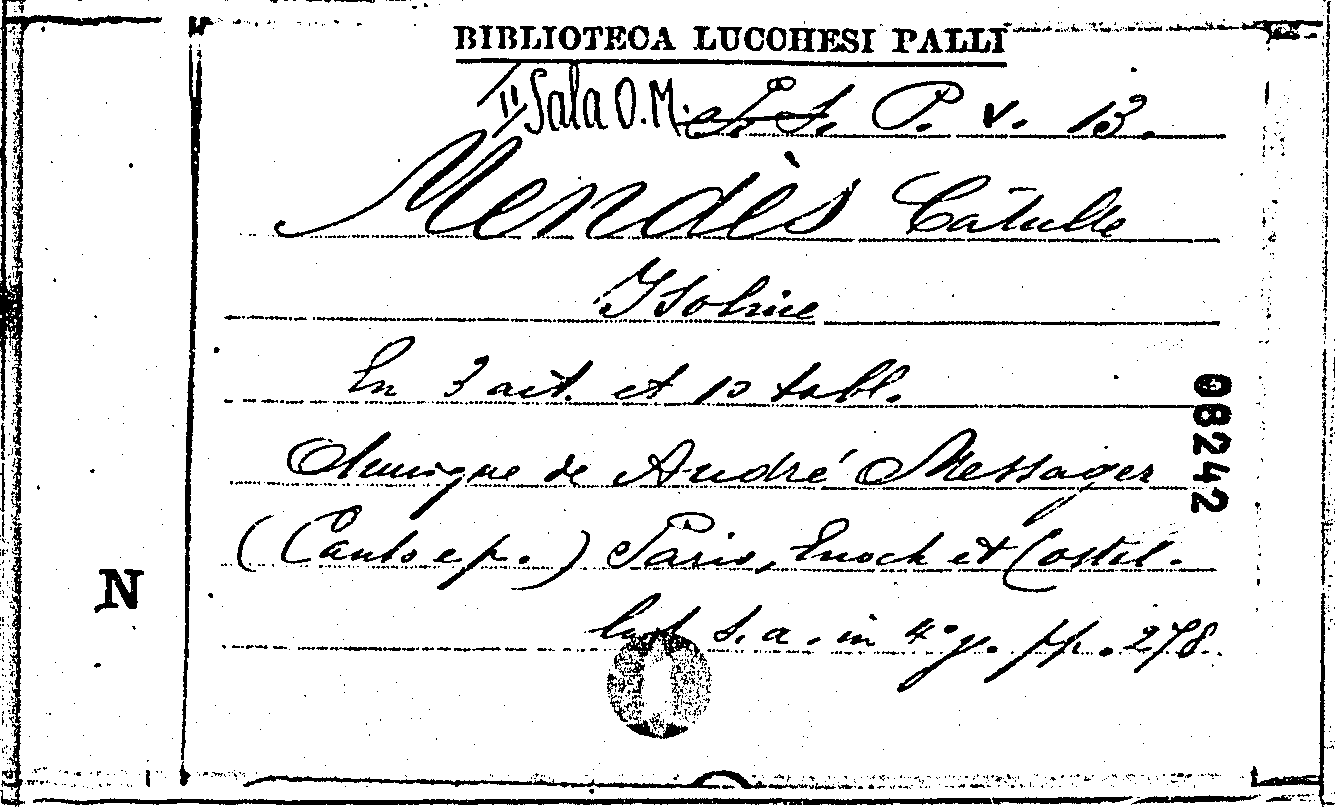 BIBLIOTECA LUCCHESI PALLI
II Sala O.M. S. S. P. V. 13.
Mendès Catulle
Isoline
En 3 act. et 10 tabl.
Musique de André Messager
(Canto e p.) Paris, Enoch et Costal.
s. a. in 4° g. pp. 278.
08242
N